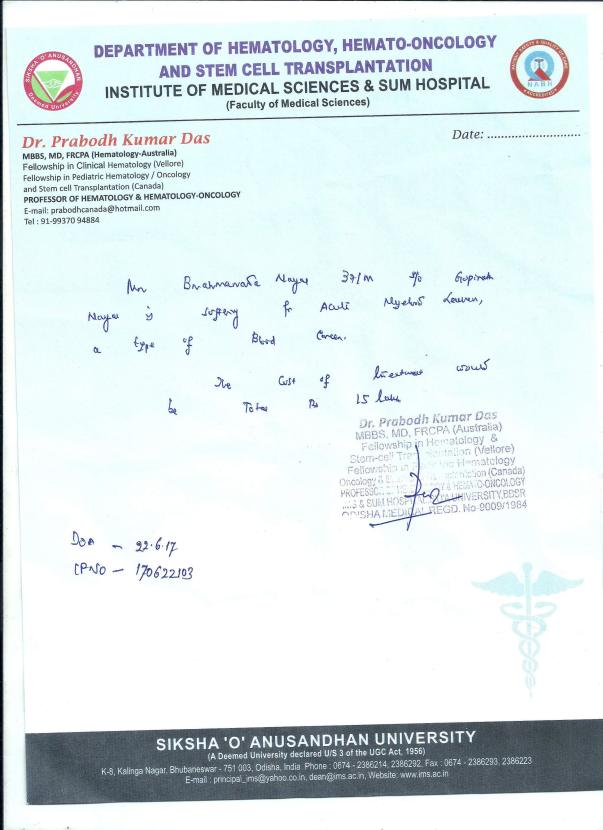 DEPARTMENT OF HEMATOLOGY, HEMATO-ONCOLOGY
AND STEM CELL TRANSPLANTATION
INSTITUTE OF MEDICAL SCIENCES & SUM HOSPITAL
(Faculty of Medical Sciences)
SIKSHA 'O' ANUSANDHAN
Deemed University
NABH
ACCREDITED
Date: ............................
Dr. Prabodh Kumar Das
MBBS, MD, FRCPA (Hematology-Australia)
Fellowship in Clinical Hematology (Vellore)
Fellowship in Pediatric Hematology / Oncology
and Stem cell Transplantation (Canada)
PROFESSOR OF HEMATOLOGY & HEMATOLOGY-ONCOLOGY
E-mail: prabodhcanada@hotmail.com
Tel : 91-99370 94884
Mr 37/m s/o
is suffering fr Acute
a type of Blood Cancer.
The Cost of treatment would
be Total Rs 15 lakh
Dr. Prabodh Kumar Das
MBBS, MD, FRCPA (Australia)
Fellowship in Hematology &
Stem-cell Transplantation (Vellore)
Fellowship in Hematology
Oncology & (Canada)
PROFESSOR & HEMATO-ONCOLOGY
IMS & SUM HOSPITAL, UNIVERSITY, BBSR
ODISHA MEDICAL REGD. No-9009/1984
DOA - 22.6.17
IPNO - 170622103
SIKSHA 'O' ANUSANDHAN UNIVERSITY
(A Deemed University declared U/S 3 of the UGC Act, 1956)
K-8, Kalinga Nagar, Bhubaneswar - 751 003, Odisha, India Phone : 0674 - 2386214, 2386292, Fax : 0674 - 2386293, 2386223
E-mail : principal_ims@yahoo.co.in, dean@ims.ac.in, Website: www.ims.ac.in